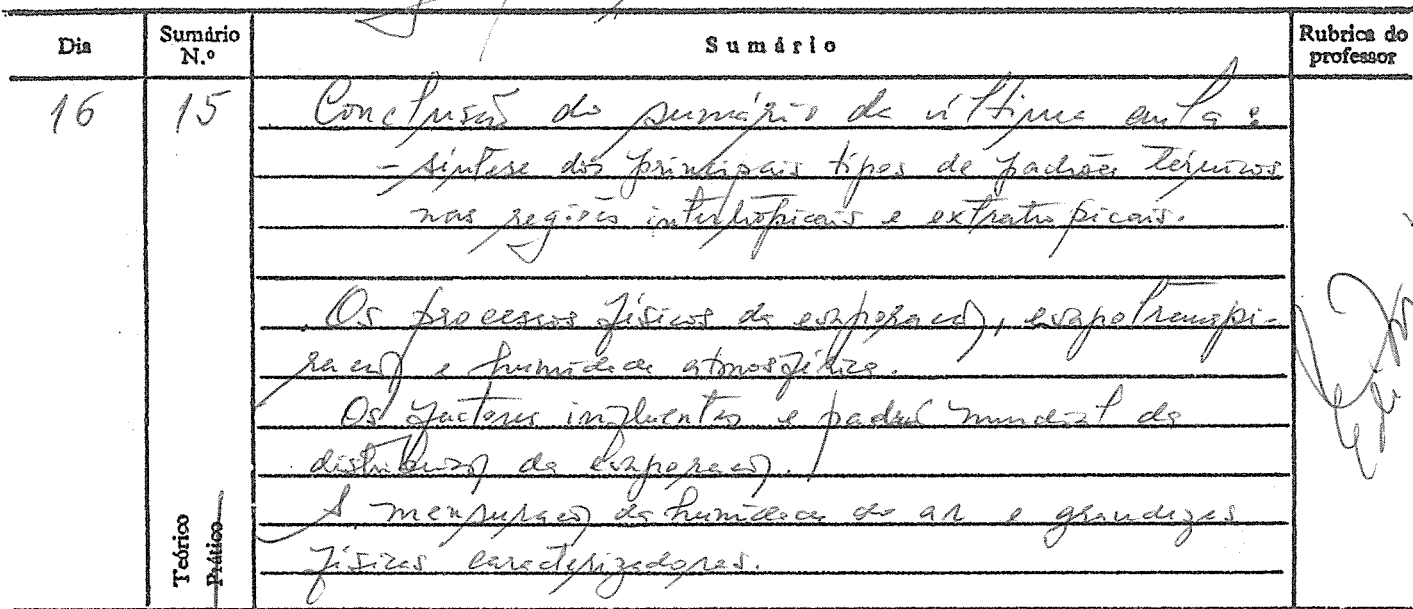 Dia Sumário N.º Sumário Rubrica do professor
16 15 Conclusão do sumário da última aula:
- síntese dos principais tipos de padrões térmicos
nas regiões intertropicais e extratropicais.
Os processos físicos da evaporação, evapotranspi-
ração e humidade atmosférica.
Os factores influentes e padrão mundial da
distribuição da evaporação.
A mensuração da humidade do ar e grandezas
físicas caracterizadores.
Teórico
Prático